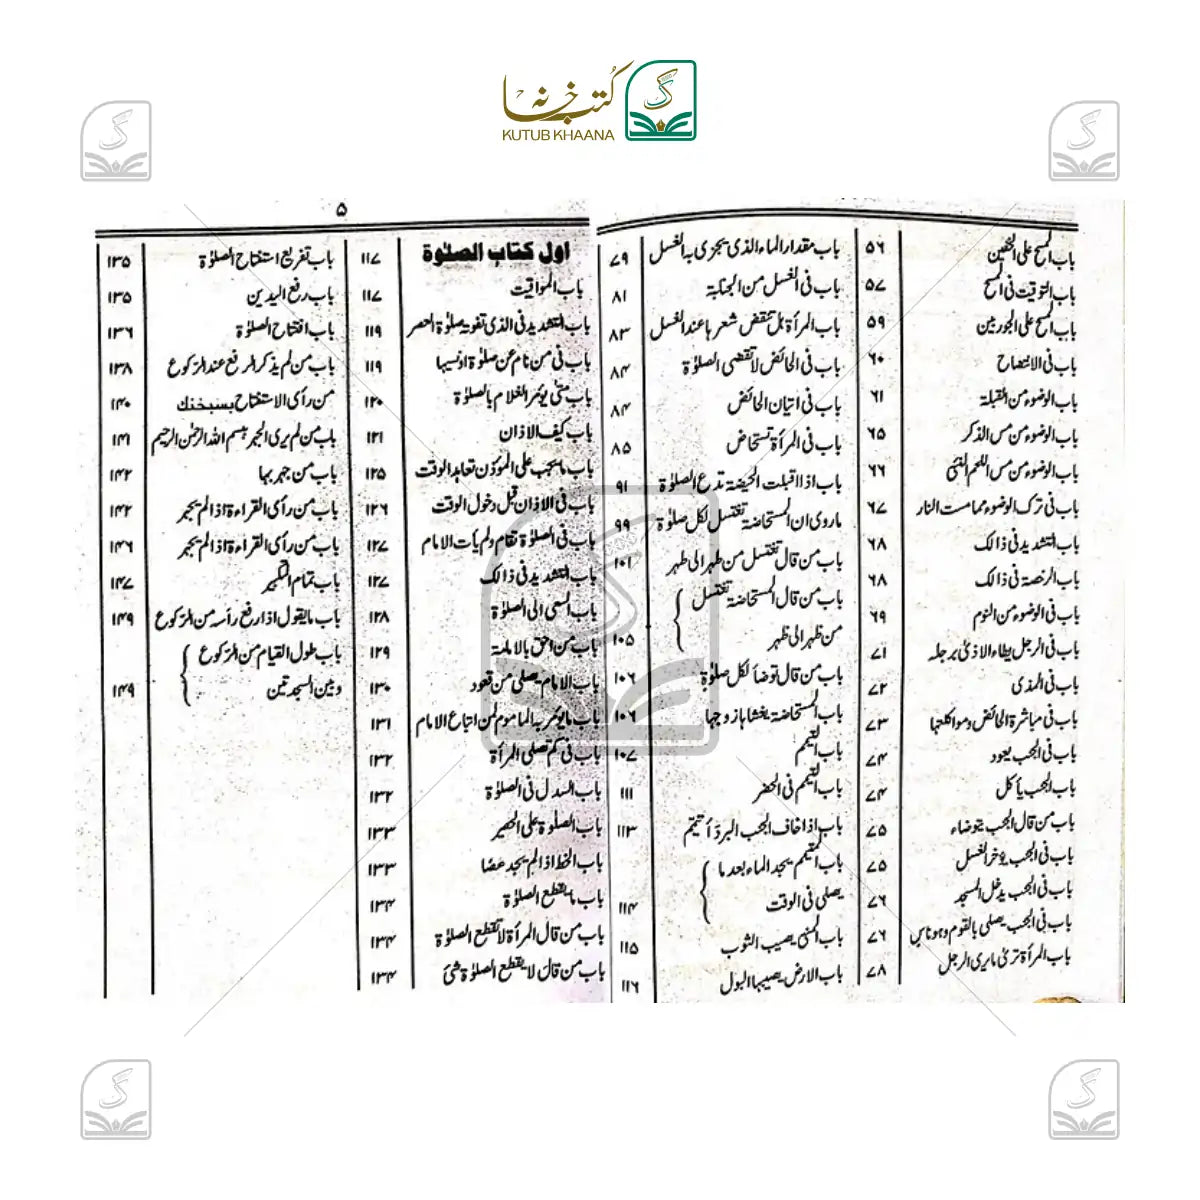 کتب خانہ
KUTUB KHAANA
باب المسح علی الخفین ۵۶
باب التوقیت فی المسح ۵۷
باب المسح علی الجوربین ۵۹
باب فی الانتضاح ۶۰
باب الوضوء من القبلة ۶۱
باب الوضوء من مس الذکر ۶۵
باب الوضوء من مس اللحم النئی ۶۶
باب فی ترک الوضوء مما مست النار ۶۷
باب التشدید فی ذالک ۶۸
باب الرخصة فی ذالک ۶۸
باب فی الوضوء من النوم ۶۹
باب فی الرجل یطاء الاذی برجله ۷۱
باب فی المذی ۷۲
باب فی مباشرة الحائض ومواکلتها ۷۳
باب فی الجنب یعود ۷۴
باب الجنب یأکل ۷۴
باب من قال الجنب یتوضاء ۷۵
باب فی الجنب یؤخر الغسل ۷۵
باب فی الجنب یدخل المسجد ۷۶
باب فی الجنب یصلی بالقوم وهو ناس ۷۶
باب المرأة تریٰ ما یری الرجل ۷۸
باب مقدار الماء الذی یجزی به الغسل ۷۹
باب فی الغسل من الجنابة ۸۱
باب المرأة هل تنقض شعرها عند الغسل ۸۳
باب فی الحائض لا تقضی الصلوٰة ۸۴
باب فی اتیان الحائض ۸۴
باب فی المرأة تستحاض ۸۵
باب اذا اقبلت الحیضة تدع الصلوٰة ۹۱
ما روی ان المستحاضة تغتسل لکل صلوٰة ۹۹
باب من قال تغتسل من طهر الی طهر ۱۰۱
باب من قال المستحاضة تغتسل
من ظهر الی ظهر ۱۰۵
باب من قال توضأ لکل صلوٰة ۱۰۶
باب المستحاضة یغشاها زوجها ۱۰۶
باب التیمم ۱۰۷
باب التیمم فی الحضر ۱۱۱
باب اذا خاف الجنب البرد أ تیمم ۱۱۳
باب المتیمم یجد الماء بعد ما
یصلی فی الوقت ۱۱۴
باب المنی یصیب الثوب ۱۱۵
باب الارض یصیبها البول ۱۱۶
۵
اول کتاب الصلوٰة ۱۱۷
باب المواقیت ۱۱۷
باب التشدید فی الذی تفوته صلوٰة العصر ۱۱۹
باب فی من نام عن صلوٰة او نسیها ۱۱۹
باب متی یؤمر الغلام بالصلوٰة ۱۲۰
باب کیف الاذان ۱۲۱
باب ما یجب علی المؤذن تعاهد الوقت ۱۲۵
باب فی الاذان قبل دخول الوقت ۱۲۶
باب فی الصلوٰة تقام ولم یأت الامام ۱۲۷
باب التشدید فی ذالک ۱۲۷
باب السعی الی الصلوٰة ۱۲۸
باب من احق بالامامة ۱۲۹
باب الامام یصلی من قعود ۱۳۰
باب ما یؤمر به الماموم من اتباع الامام ۱۳۱
باب فی کم تصلی المرأة ۱۳۲
باب السدل فی الصلوٰة ۱۳۲
باب الصلوٰة علی الحصیر ۱۳۳
باب الخط اذا لم یجد عصا ۱۳۳
باب ما یقطع الصلوٰة ۱۳۴
باب من قال المرأة لا تقطع الصلوٰة ۱۳۴
باب من قال لا یقطع الصلوٰة شئ ۱۳۴
باب تفریع استفتاح الصلوٰة ۱۳۵
باب رفع الیدین ۱۳۵
باب افتتاح الصلوٰة ۱۳۶
باب من لم یذکر الرفع عند الرکوع ۱۳۸
من رأی الاستفتاح بسبحٰنک ۱۴۰
باب من لم یری الجهر ببسم الله الرحمٰن الرحیم ۱۴۱
باب من جهر بها ۱۴۲
باب من رأی القراءة اذا لم یجهر ۱۴۲
باب من رأی القراءة اذا لم یجهر ۱۴۶
باب تمام التکبیر ۱۴۷
باب ما یقول اذا رفع رأسه من الرکوع ۱۴۹
باب طول القیام من الرکوع
وبین السجدتین ۱۴۹